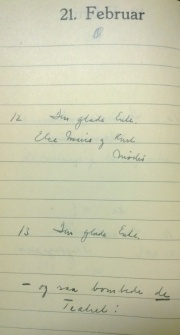 21. Februar
12 Den glade Enke
Else Marie
15 Den glade Enke
– og saa bombede de
Teatret!